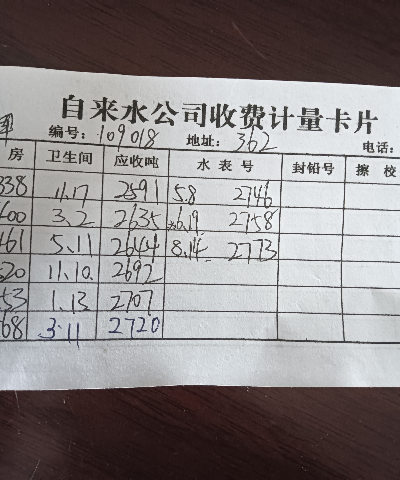 自来水公司收费计量卡片
编号: 109018 地址: 362 电话:
房 卫生间 应收吨 水表号 封铅号 擦 校
838 11.17 2591 5.8 2746
600 3.2 2635 6.19 2758
461 5.11 2644 8.14 2773
520 11.10 2692
53 1.13 2707
68 3.11 2720